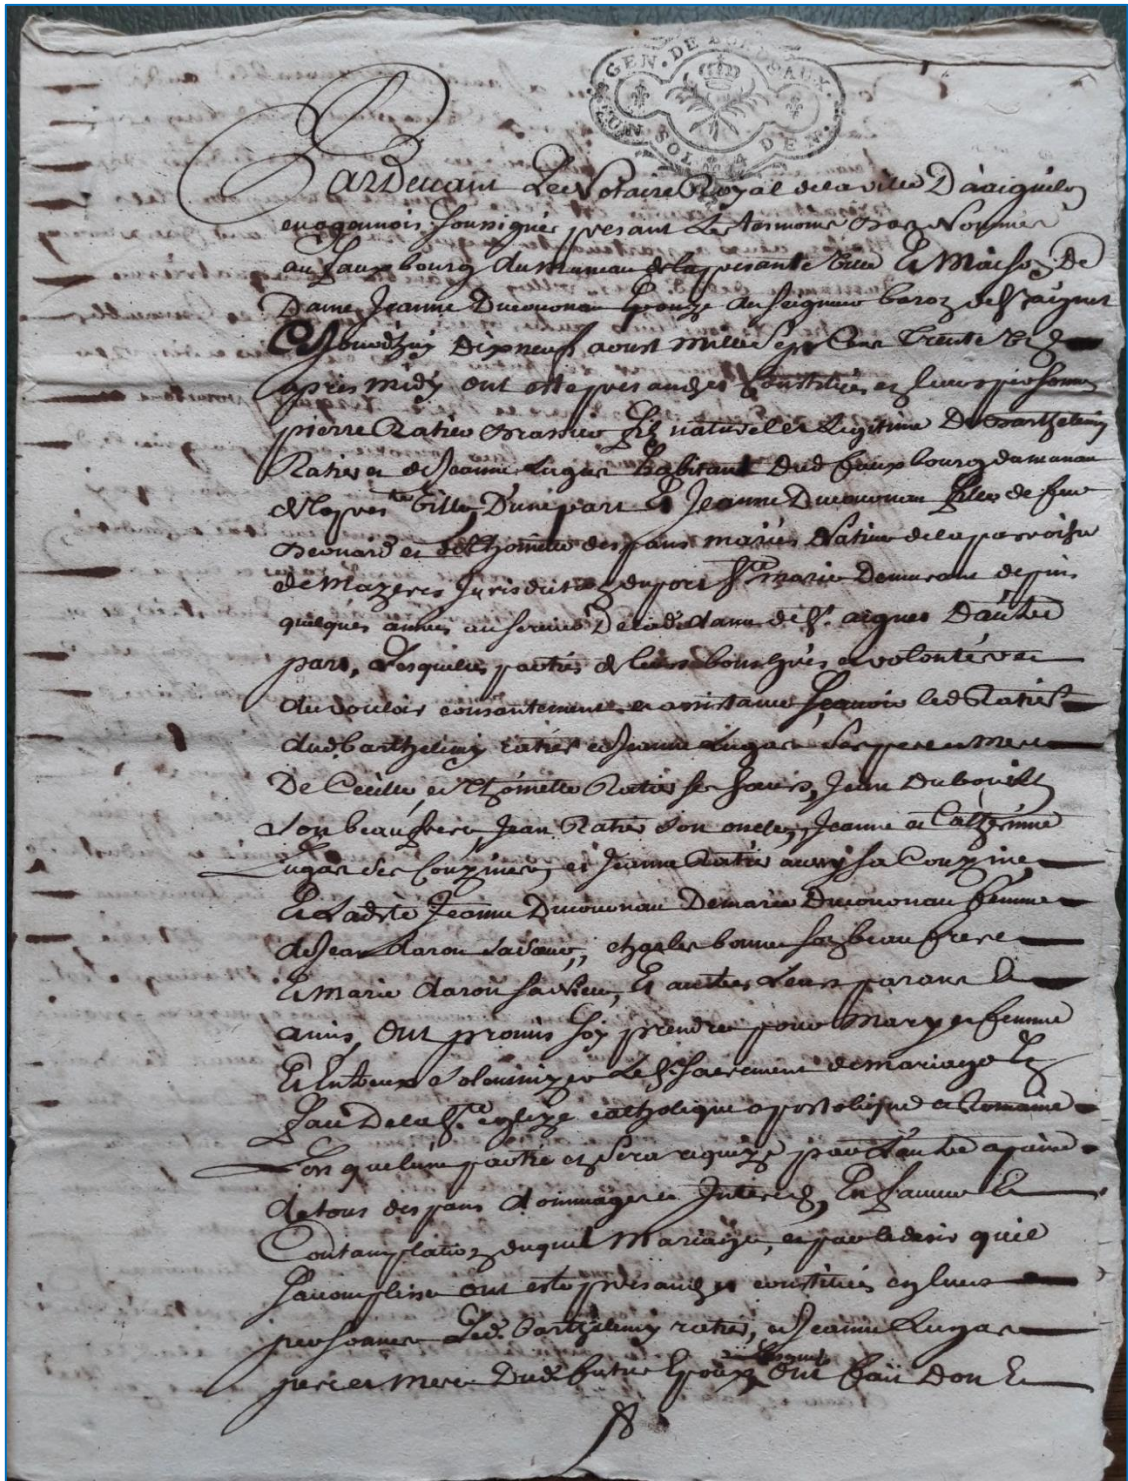 GEN. DE BORDEAUX.
UN SOL 4 DEN.
Pardevant Le Notaire Royal dela ville D'aiguilon
en agennois soussigné presant Les tesmoins Bas Nommes
au faux bourg du muneau de la presante ville Et Maison De
Dame Jeanne Ducournau Epouze du seigneur baron de St aignet
Cejourd'huy Dixneuf aoust mille sept Cens trente
apres midy ont esté presans et Constitués en leurs personnes
pierre Ratier Brassier fils naturel et Legitime De Barthelemy
Ratier et de Jeanne Lugat habitant Dud faux bourg du
de la pres.te Ville, D'une part Et Jeanne Ducournau fille de feu
Leonard et de thomette despans mariés Native de la parroisse
de Mazeres Jurisdiction du port Ste marie Demurant depuis
quelques années au service De lad. dame de St. aignet D'autre
part, Lesquelles parties de leurs bons grés et volonté
du vouloir consantement et assistance sçavoir led Ratier
dud barthelemy ratier et Jeanne Lugat ses pere et mere
De Cecille et thomette Ratier ses sœurs, Jean
son beau frere, Jean Ratier son oncle, Jeanne et Catherinne
Lugat ses Couzines, et Jeanne Ratier aussy sa Couzine
Et Ladite Jeanne Ducournau De marie Ducournau femme
de Jean daron sa sœur, charles bonne son beau frere
Et marie daron sa niece, Et autres Leurs parans Et
amis, Ont promis soy prendre pour Mary et femme
Et Entreux solemnizer Le St. Sacrement de mariage En
face De la Ste. eglize catholique apostolique et Romaine
Lors que l'une partie en sera requize par l'autre a paine
de tous despans dommages et Interets, En faveur Et
Contamplation duquel Mariage, et par le desir qu'il
s'accomplisse ont esté presans et constitués en leurs
personnes Led. Barthelemy ratier, et Jeanne Lugat
pere et mere Dud. futur Epoux Ont fait Don Et